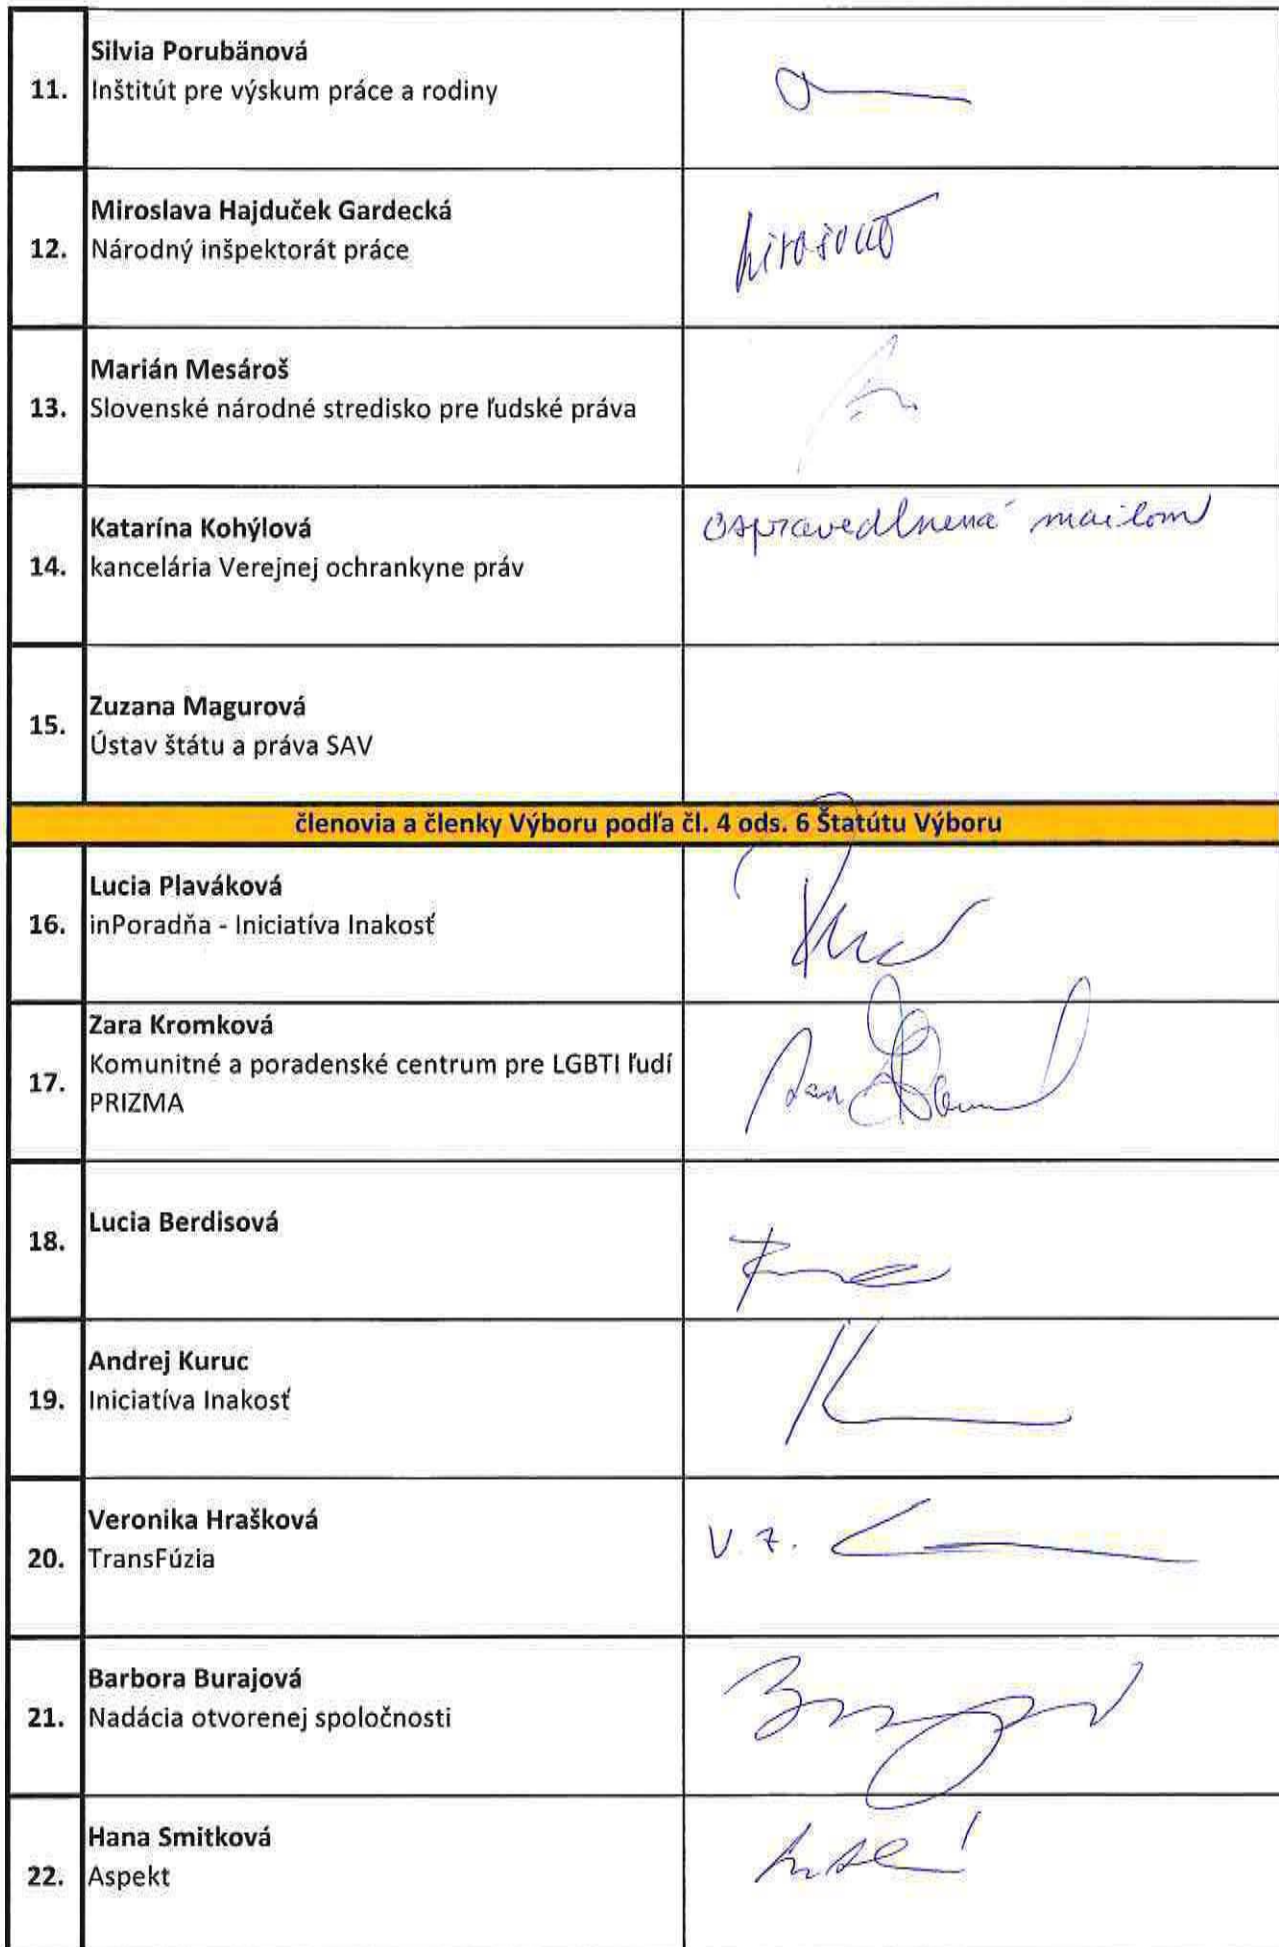 11.
Silvia Porubänová
Inštitút pre výskum práce a rodiny
12.
Miroslava Hajduček Gardecká
Národný inšpektorát práce
13.
Marián Mesároš
Slovenské národné stredisko pre ľudské práva
14.
Katarína Kohýlová
kancelária Verejnej ochrankyne práv
Ospravedlnená mailom
15.
Zuzana Magurová
Ústav štátu a práva SAV
členovia a členky Výboru podľa čl. 4 ods. 6 Štatútu Výboru
16.
Lucia Plaváková
inPoradňa - Iniciatíva Inakosť
17.
Zara Kromková
Komunitné a poradenské centrum pre LGBTI ľudí
PRIZMA
18.
Lucia Berdisová
19.
Andrej Kuruc
Iniciatíva Inakosť
20.
Veronika Hrašková
TransFúzia
v. z.
21.
Barbora Burajová
Nadácia otvorenej spoločnosti
22.
Hana Smitková
Aspekt